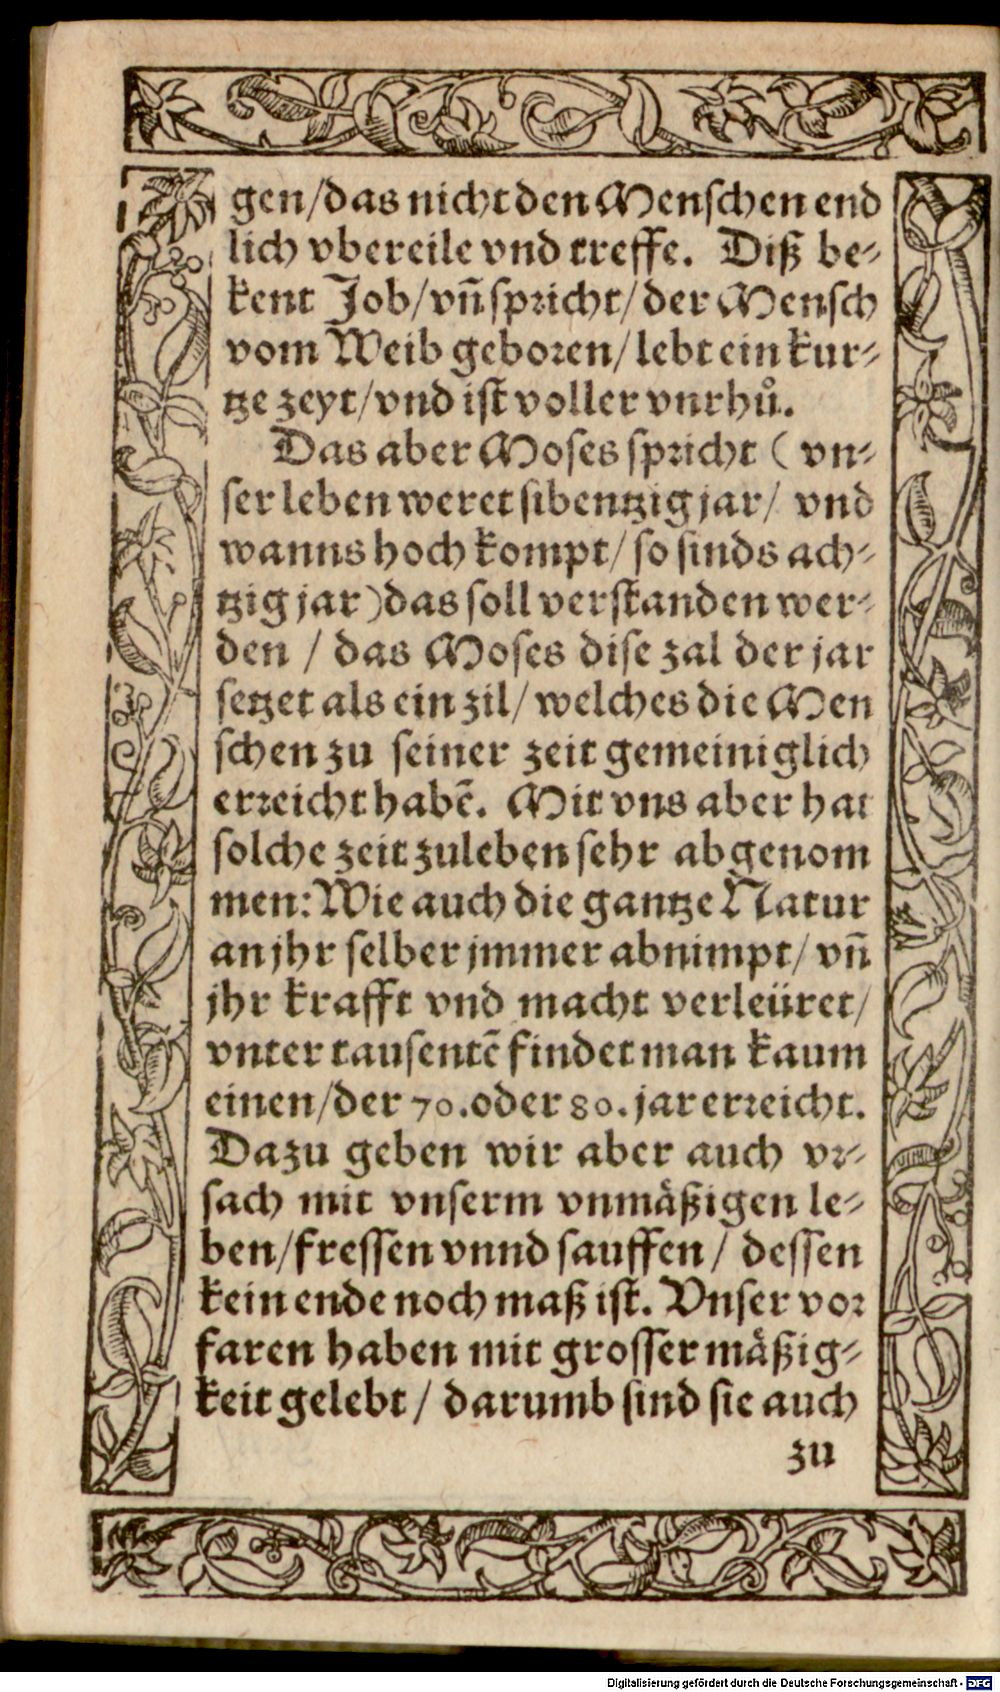 gen/das nicht den Menschen end
lich vbereile vnd treffe. Diß be-
kent Job/vñ spricht/der Mensch
vom Weib geboren/lebt ein kur-
tze zeyt/vnd ist voller vnrhů.
Das aber Moses spricht (vn-
ser leben weret sibentzig jar/ vnd
wanns hoch kompt/so sinds ach-
tzig jar)das soll verstanden wer-
den / das Moses dise zal der jar
setzet als ein zil/ welches die Men
schen zu seiner zeit gemeiniglich
erreicht habē. Mit vns aber hat
solche zeit zuleben sehr abgenom
men: Wie auch die gantze Natur
an jhr selber jmmer abnimpt/ vñ
jhr krafft vnd macht verleüret/
vnter tausentē findet man kaum
einen/der 70. oder 80. jar erreicht.
Dazu geben wir aber auch vr-
sach mit vnserm vnmäßigen le-
ben/fressen vnnd sauffen / dessen
kein ende noch maß ist. Vnser vor
faren haben mit grosser mäßig-
keit gelebt / darumb sind sie auch
zu
Digitalisierung gefördert durch die Deutsche Forschungsgemeinschaft - DFG